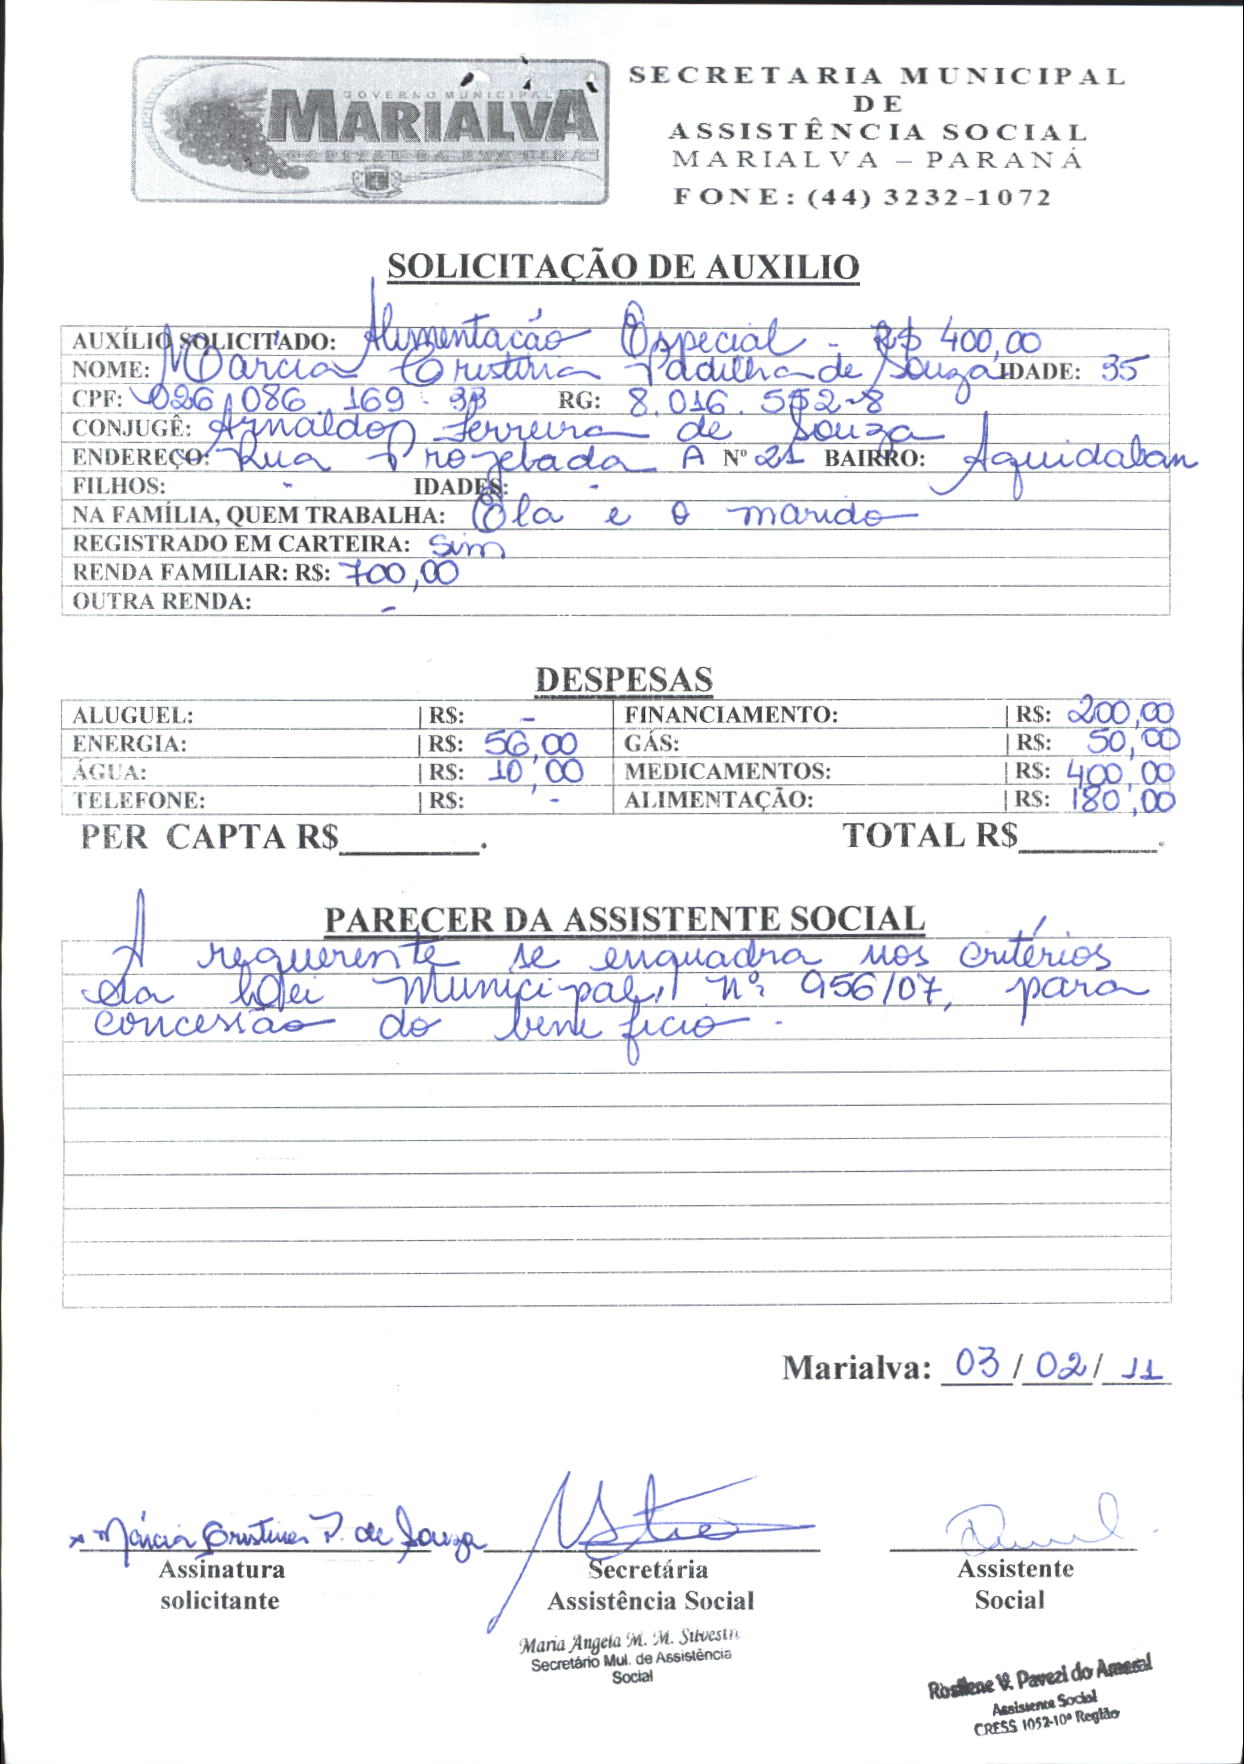 GOVERNO MUNICIPAL
MARIALVA
CAPITAL DA UVA FINA
SECRETARIA MUNICIPAL
DE
ASSISTÊNCIA SOCIAL
MARIALVA – PARANÁ
FONE: (44) 3232-1072
SOLICITAÇÃO DE AUXILIO
AUXÍLIO SOLICITADO: Alimentacáo Especial - R$ 400,00
NOME: Marcia Cristina Padilha de Souza IDADE: 35
CPF: 026.086.169-33 RG: 8.016.552-8
CONJUGÊ: Arnaldo Ferreira de Souza
ENDEREÇO: Rua Projetada A Nº 21 BAIRRO: Aquidaban
FILHOS: - IDADES: -
NA FAMÍLIA, QUEM TRABALHA: Ela e o marido
REGISTRADO EM CARTEIRA: Sim
RENDA FAMILIAR: R$: 700,00
OUTRA RENDA: -
DESPESAS
ALUGUEL: | R$: - FINANCIAMENTO: | R$: 200,00
ENERGIA: | R$: 56,00 GÁS: | R$: 50,00
ÁGUA: | R$: 10,00 MEDICAMENTOS: | R$: 400,00
TELEFONE: | R$: - ALIMENTAÇÃO: | R$: 180,00
PER CAPTA R$________. TOTAL R$________.
PARECER DA ASSISTENTE SOCIAL
A requerente se enquadra nos critérios
da Lei Municipal, nº 956/07, para
concesião do beneficio.
Marialva: 03/02/11
x Márcia Cristina P. de Souza
Assinatura Secretária Assistente
solicitante Assistência Social Social
Maria Angela M. M. Silvestri
Secretário Mul. de Assistência
Social
Rosilene V. Pavezi do Amaral
Assistente Social
CRESS 1052-10ª Região